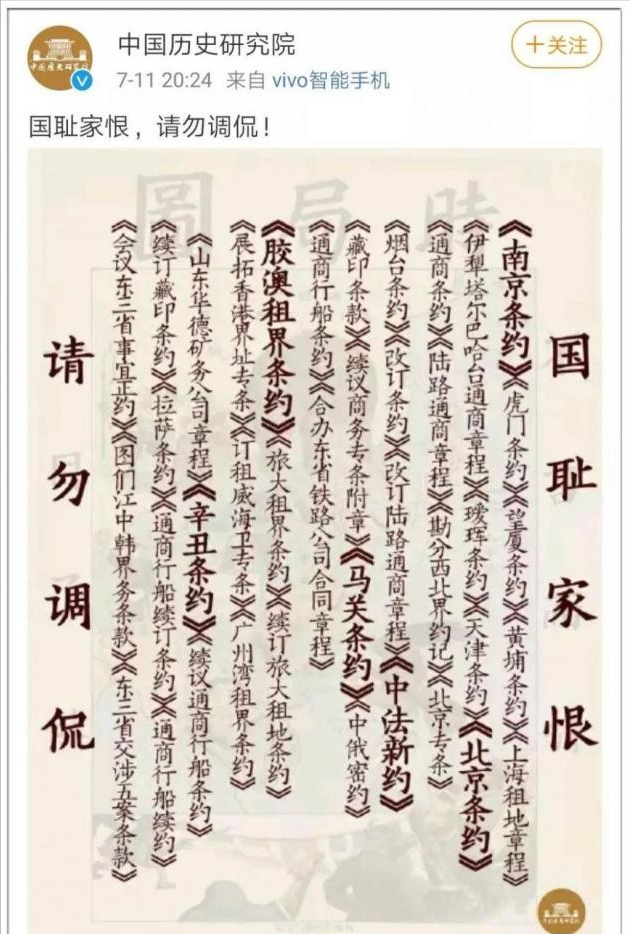 中国历史研究院
+关注
7-11 20:24 来自 vivo智能手机
国耻家恨，请勿调侃！
時局圖
国耻家恨
《南京条约》《虎门条约》《望厦条约》《黄埔条约》《上海租地章程》
《伊犁塔尔巴哈台通商章程》《瑷珲条约》《天津条约》《北京条约》
《通商条约》《陆路通商章程》《勘分西北界约记》《北京专条》
《烟台条约》《改订条约》《改订陆路通商章程》《中法新约》
《藏印条款》《续议商务专条附章》《马关条约》《中俄密约》
《通商行船条约》《合办东省铁路公司合同章程》
《胶澳租界条约》《旅大租界条约》《续订旅大租地条约》
《展拓香港界址专条》《订租威海卫专条》《广州湾租界条约》
《山东华德矿务公司章程》《辛丑条约》《续议通商行船条约》
《续订藏印条约》《拉萨条约》《通商行船续订条约》《通商行船续约》
《会议东三省事宜正约》《图们江中韩界务条款》《东三省交涉五案条款》
请勿调侃